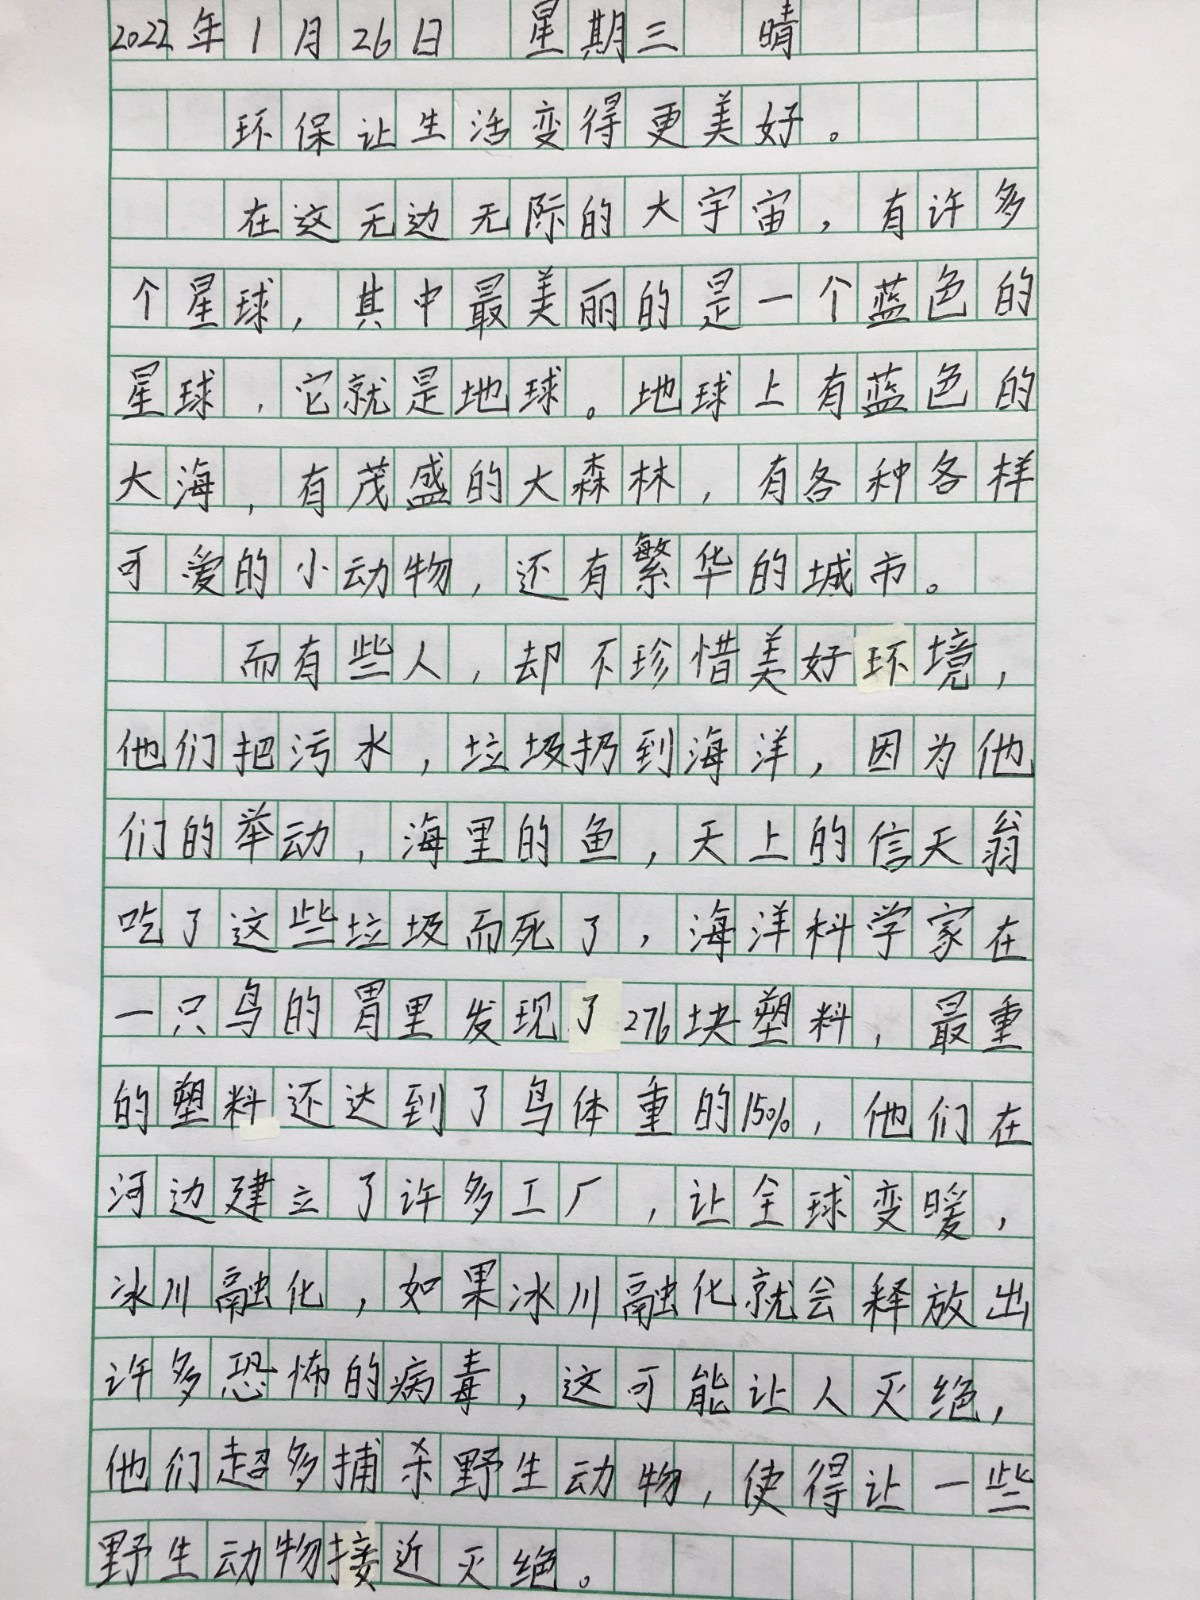 2022年1月26日 星期三 晴
环保让生活变得更美好。
在这无边无际的大宇宙，有许多
个星球，其中最美丽的是一个蓝色的
星球，它就是地球。地球上有蓝色的
大海，有茂盛的大森林，有各种各样
可爱的小动物，还有繁华的城市。
而有些人，却不珍惜美好环境，
他们把污水，垃圾扔到海洋，因为他
们的举动，海里的鱼，天上的信天翁
吃了这些垃圾而死了，海洋科学家在
一只鸟的胃里发现了276块塑料，最重
的塑料还达到了鸟体重的15%，他们在
河边建立了许多工厂，让全球变暖，
冰川融化，如果冰川融化就会释放出
许多恐怖的病毒，这可能让人灭绝，
他们超多捕杀野生动物，使得让一些
野生动物接近灭绝。